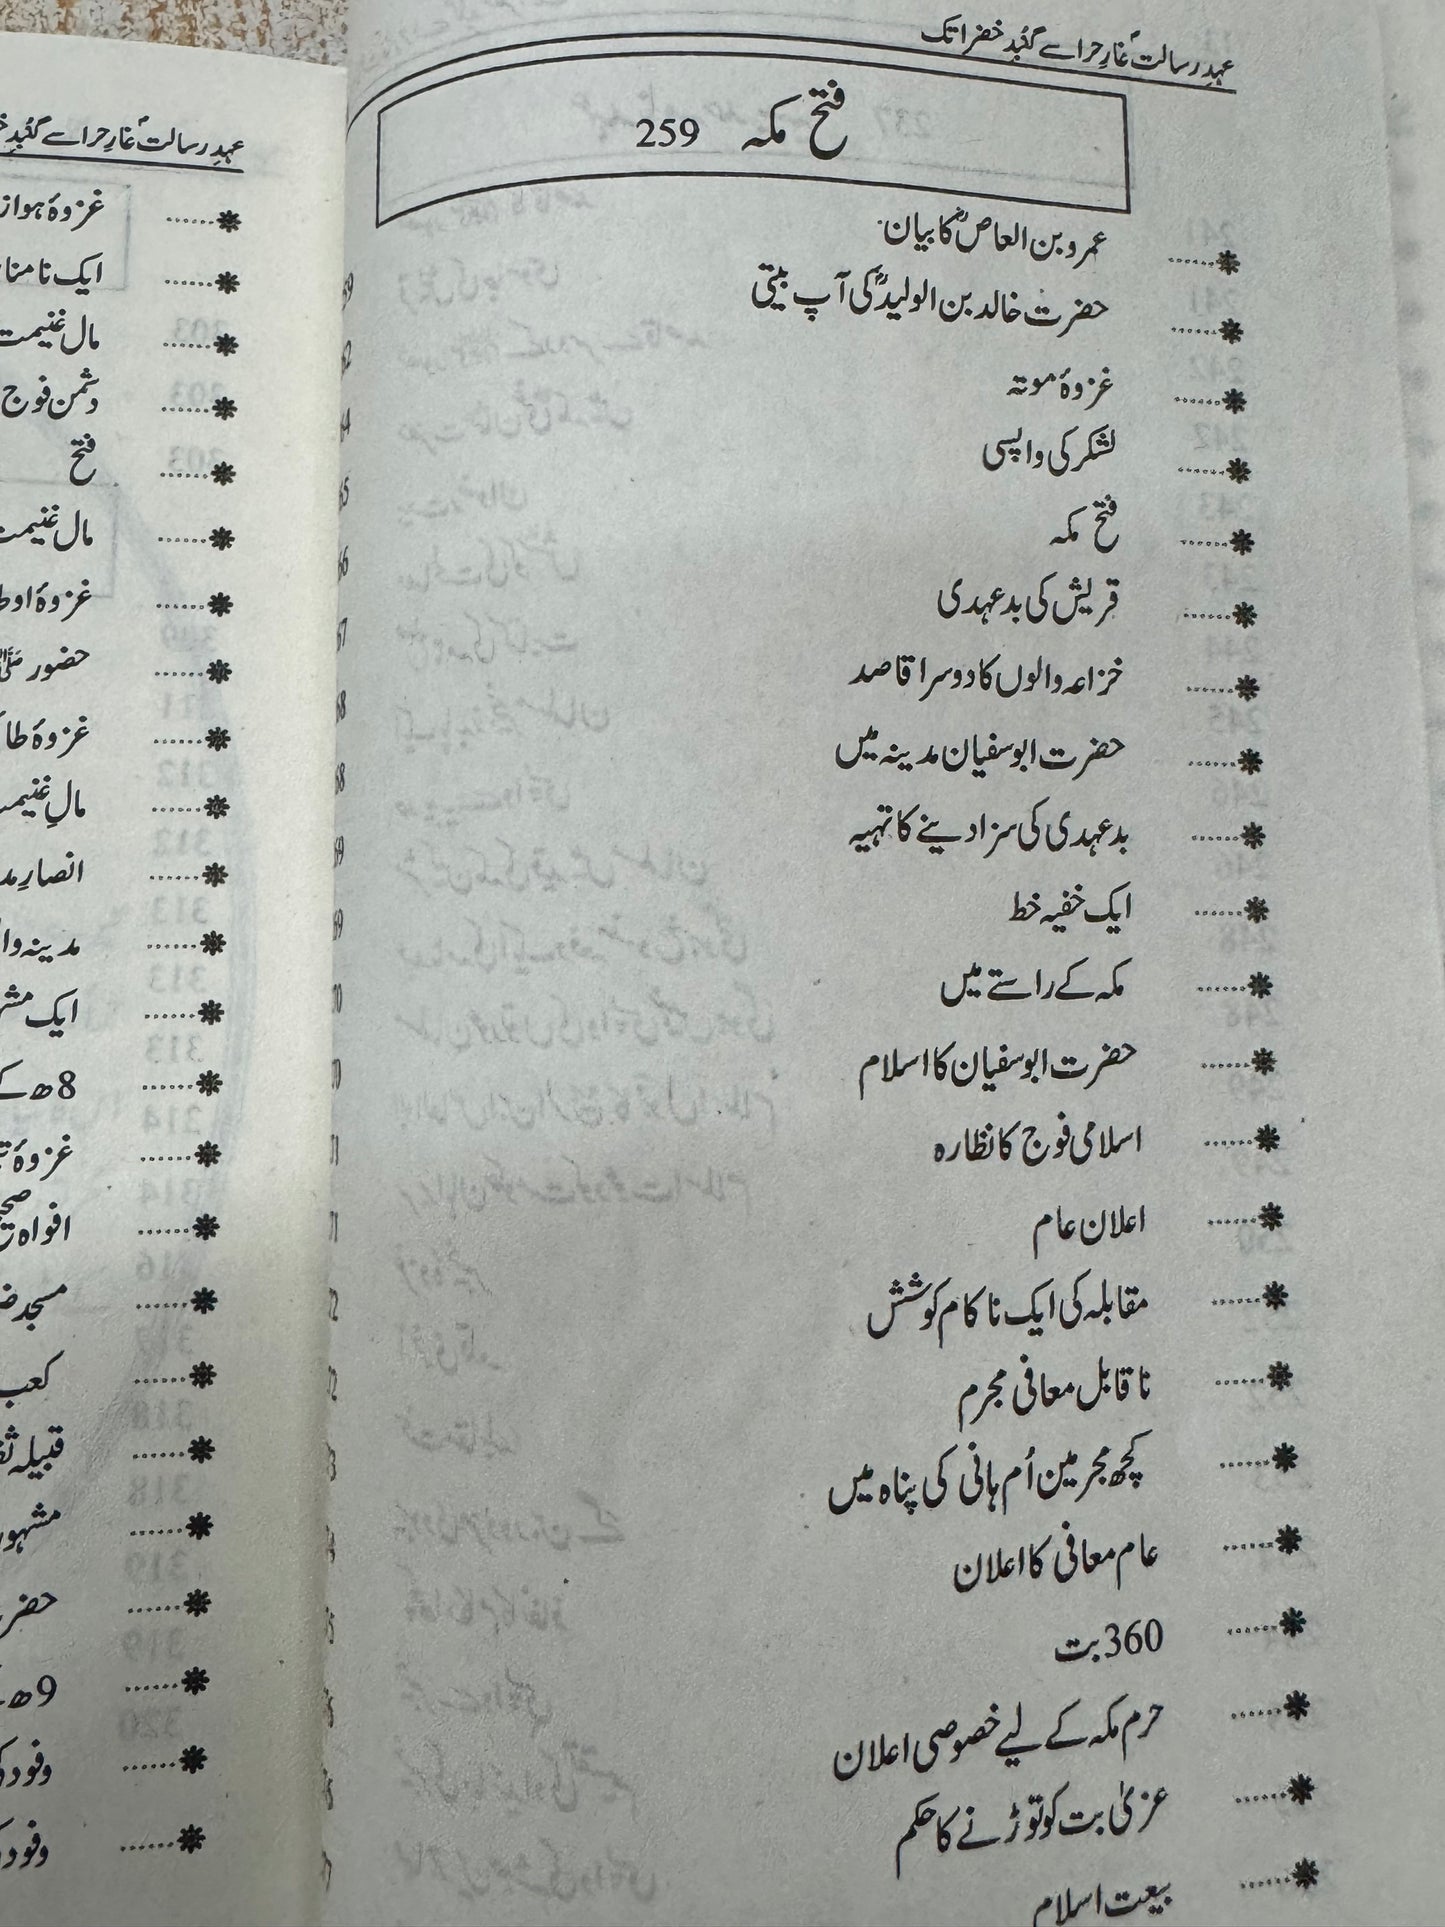 عہدِ رسالتؐ غارِ حرا سے گنبدِ خضرا تک
فتح مکہ 259
عمرو بن العاصؓ کا بیان
حضرت خالد بن الولیدؓ کی آپ بیتی
غزوۂ موتہ
لشکر کی واپسی
فتح مکہ
قریش کی بدعہدی
خزاعہ والوں کا دوسرا قاصد
حضرت ابوسفیان مدینہ میں
بدعہدی کی سزا دینے کا تہیہ
ایک خفیہ خط
مکہ کے راستے میں
حضرت ابوسفیان کا اسلام
اسلامی فوج کا نظارہ
اعلان عام
مقابلہ کی ایک ناکام کوشش
ناقابل معافی مجرم
کچھ مجرمین اُم ہانی کی پناہ میں
عام معافی کا اعلان
360 بت
حرم مکہ کے لیے خصوصی اعلان
عزیٰ بت کو توڑنے کا حکم
بیعت اسلام
عہدِ رسالتؐ غارِ حرا سے گنبدِ
غزوۂ
ایک
مال غنیمت
دشمن فوج
فتح
مال غنیمت
غزوۂ
حضور
غزوۂ
مالِ
انصارِ
مدینہ
ایک
8ھ کے
غزوۂ
افواہ
مسجد
کعب
قبیلہ
مشہور
9ھ
وفود
وفود